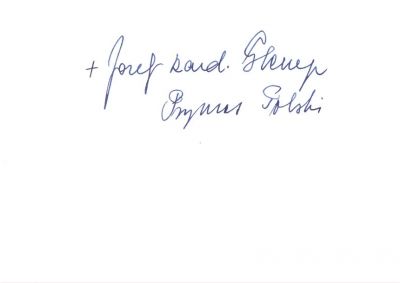 + Józef kard. Glemp
Prymas Polski